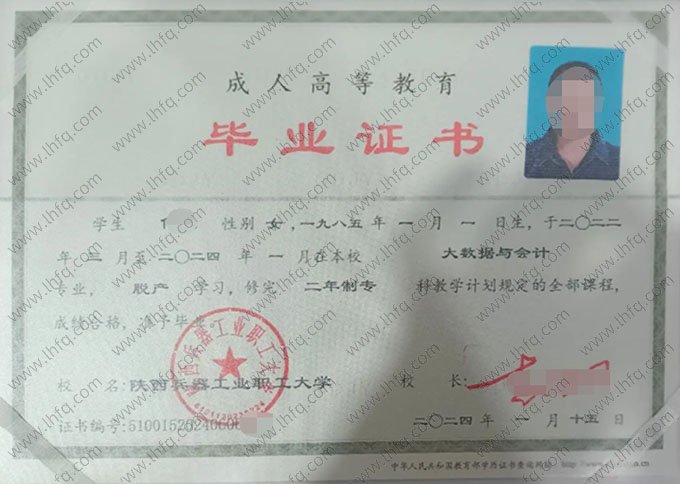 成人高等教育
毕业证书
学生 性别 女,一九八五年 一 月 一 日生,于二〇二二
年 三 月至 二〇二四 年 一 月在本校 大数据与会计
专业, 脱产 学习,修完 二年制专 科教学计划规定的全部课程,
成绩合格,准予毕业。
陕西兵器工业职工大学
校 名:陕西兵器工业职工大学 校 长:
二〇二四 年 一 月 十五 日
证书编号:51001525240
中华人民共和国教育部学历证书查询网址:
www.lhfq.com